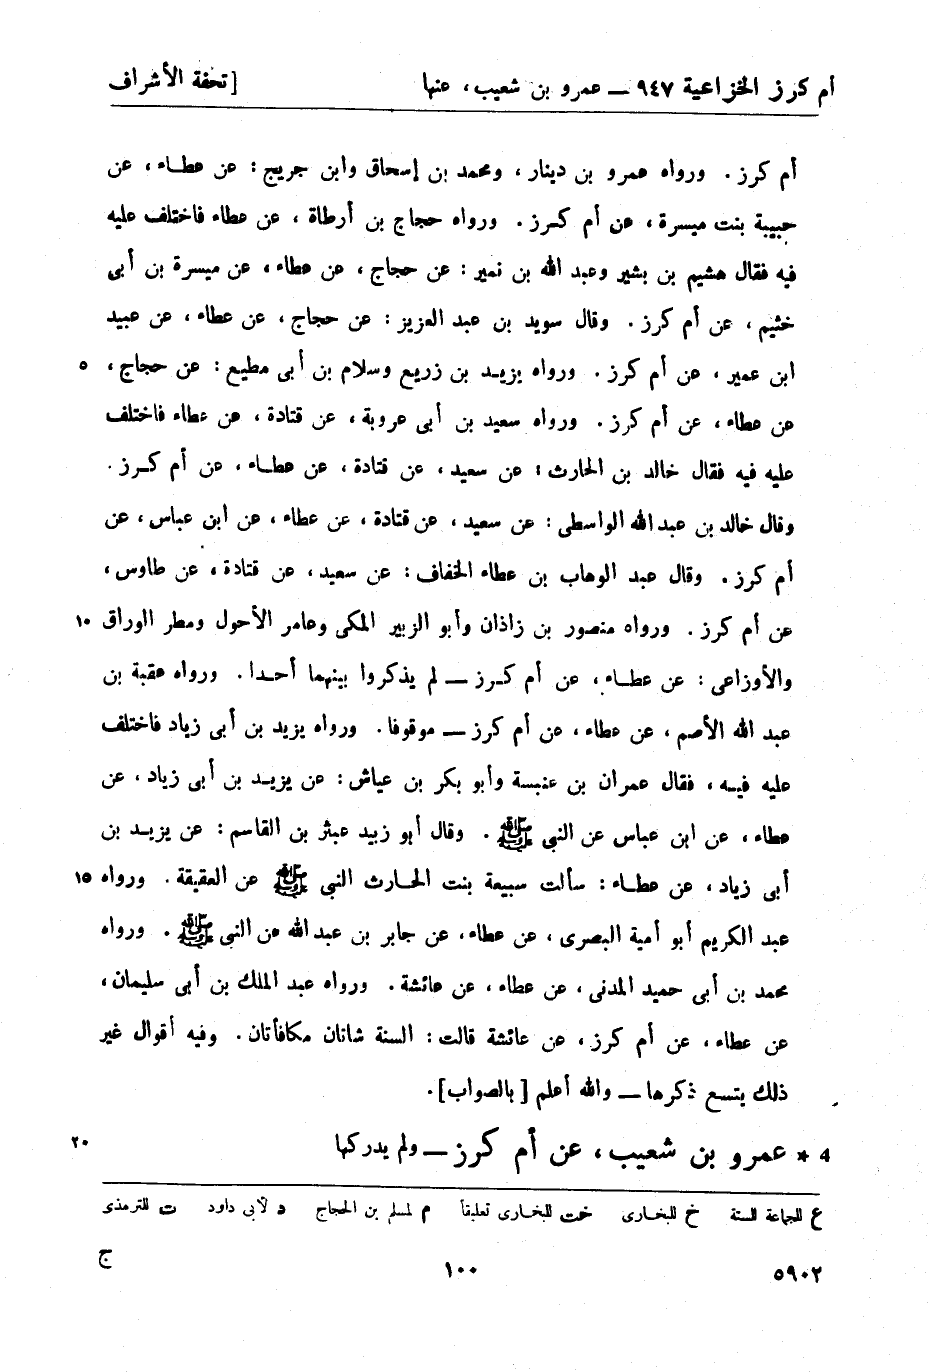 أم كرز الخزاعية ٩٤٧ — عمرو بن شعيب ، عنها [ تحفة الأشراف
أم كرز . ورواه عمرو بن دينار ، ومحمد بن إسحاق وابن جريج : عن عطاء ، عن
حبيبة بنت ميسرة ، عن أم كرز . ورواه حجاج بن أرطاة ، عن عطاء فاختلف عليه
فيه فقال هشيم بن بشير وعبد الله بن نمير : عن حجاج ، عن عطاء ، عن ميسرة بن أبى
خثيم ، عن أم كرز . وقال سويد بن عبد العزيز : عن حجاج ، عن عطاء ، عن عبيد
ابن عمير ، عن أم كرز . ورواه يزيد بن زريع وسلام بن أبى مطيع : عن حجاج ، ٥
عن عطاء ، عن أم كرز . ورواه سعيد بن أبى عروبة ، عن قتادة ، عن عطاء فاختلف
عليه فيه فقال خالد بن الحارث : عن سعيد ، عن قتادة ، عن عطاء ، عن أم كرز .
وقال خالد بن عبد الله الواسطى : عن سعيد ، عن قتادة ، عن عطاء ، عن ابن عباس ، عن
أم كرز . وقال عبد الوهاب بن عطاء الخفاف : عن سعيد ، عن قتادة ، عن طاوس ،
عن أم كرز . ورواه منصور بن زاذان وأبو الزبير المكى وعامر الأحول ومطر الوراق ١٠
والأوزاعى : عن عطاء ، عن أم كرز — لم يذكروا بينهما أحدا . ورواه عقبة بن
عبد الله الأصم ، عن عطاء ، عن أم كرز — موقوفا . ورواه يزيد بن أبى زياد فاختلف
عليه فيه ، فقال عمران بن عنبسة وأبو بكر بن عياش : عن يزيد بن أبى زياد ، عن
عطاء ، عن ابن عباس عن النبى ﷺ . وقال أبو زبيد عبثر بن القاسم : عن يزيد بن
أبى زياد ، عن عطاء : سألت سبيعة بنت الحارث النبى ﷺ عن العقيقة . ورواه ١٥
عبد الكريم أبو أمية البصرى ، عن عطاء ، عن جابر بن عبد الله عن النبى ﷺ . ورواه
محمد بن أبى حميد المدنى ، عن عطاء ، عن عائشة . ورواه عبد الملك بن أبى سليمان ،
عن عطاء ، عن أم كرز ، عن عائشة قالت : السنة شاتان مكافأتان . وفيه أقوال غير
ذلك يتسع ذكرها — والله أعلم [ بالصواب ] .
4 * عمرو بن شعيب ، عن أم كرز — ولم يدركها ٢٠
ع للجماعة الستة خ للبخارى خت للبخارى تعليقاً م لمسلم بن الحجاج د لأبى داود ت للترمذى
٥٩٠٢ ١٠٠ ج